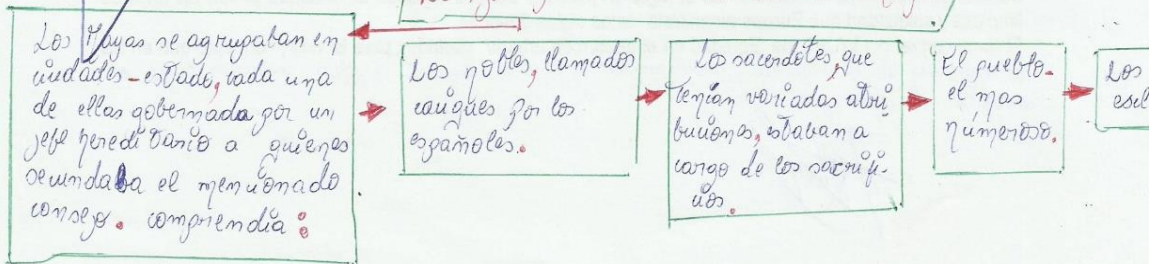 Los Mayas se agrupaban en
ciudades-estado, cada una
de ellas gobernada por un
jefe hereditario a quienes
secundaba el mencionado
consejo. comprendía:
Los nobles, llamados
caciques por los
españoles.
Los sacerdotes, que
tenían variadas atri
buciones, estaban a
cargo de los sacrifi-
cios.
El pueblo-
el mas
númeroso.
Los
escl